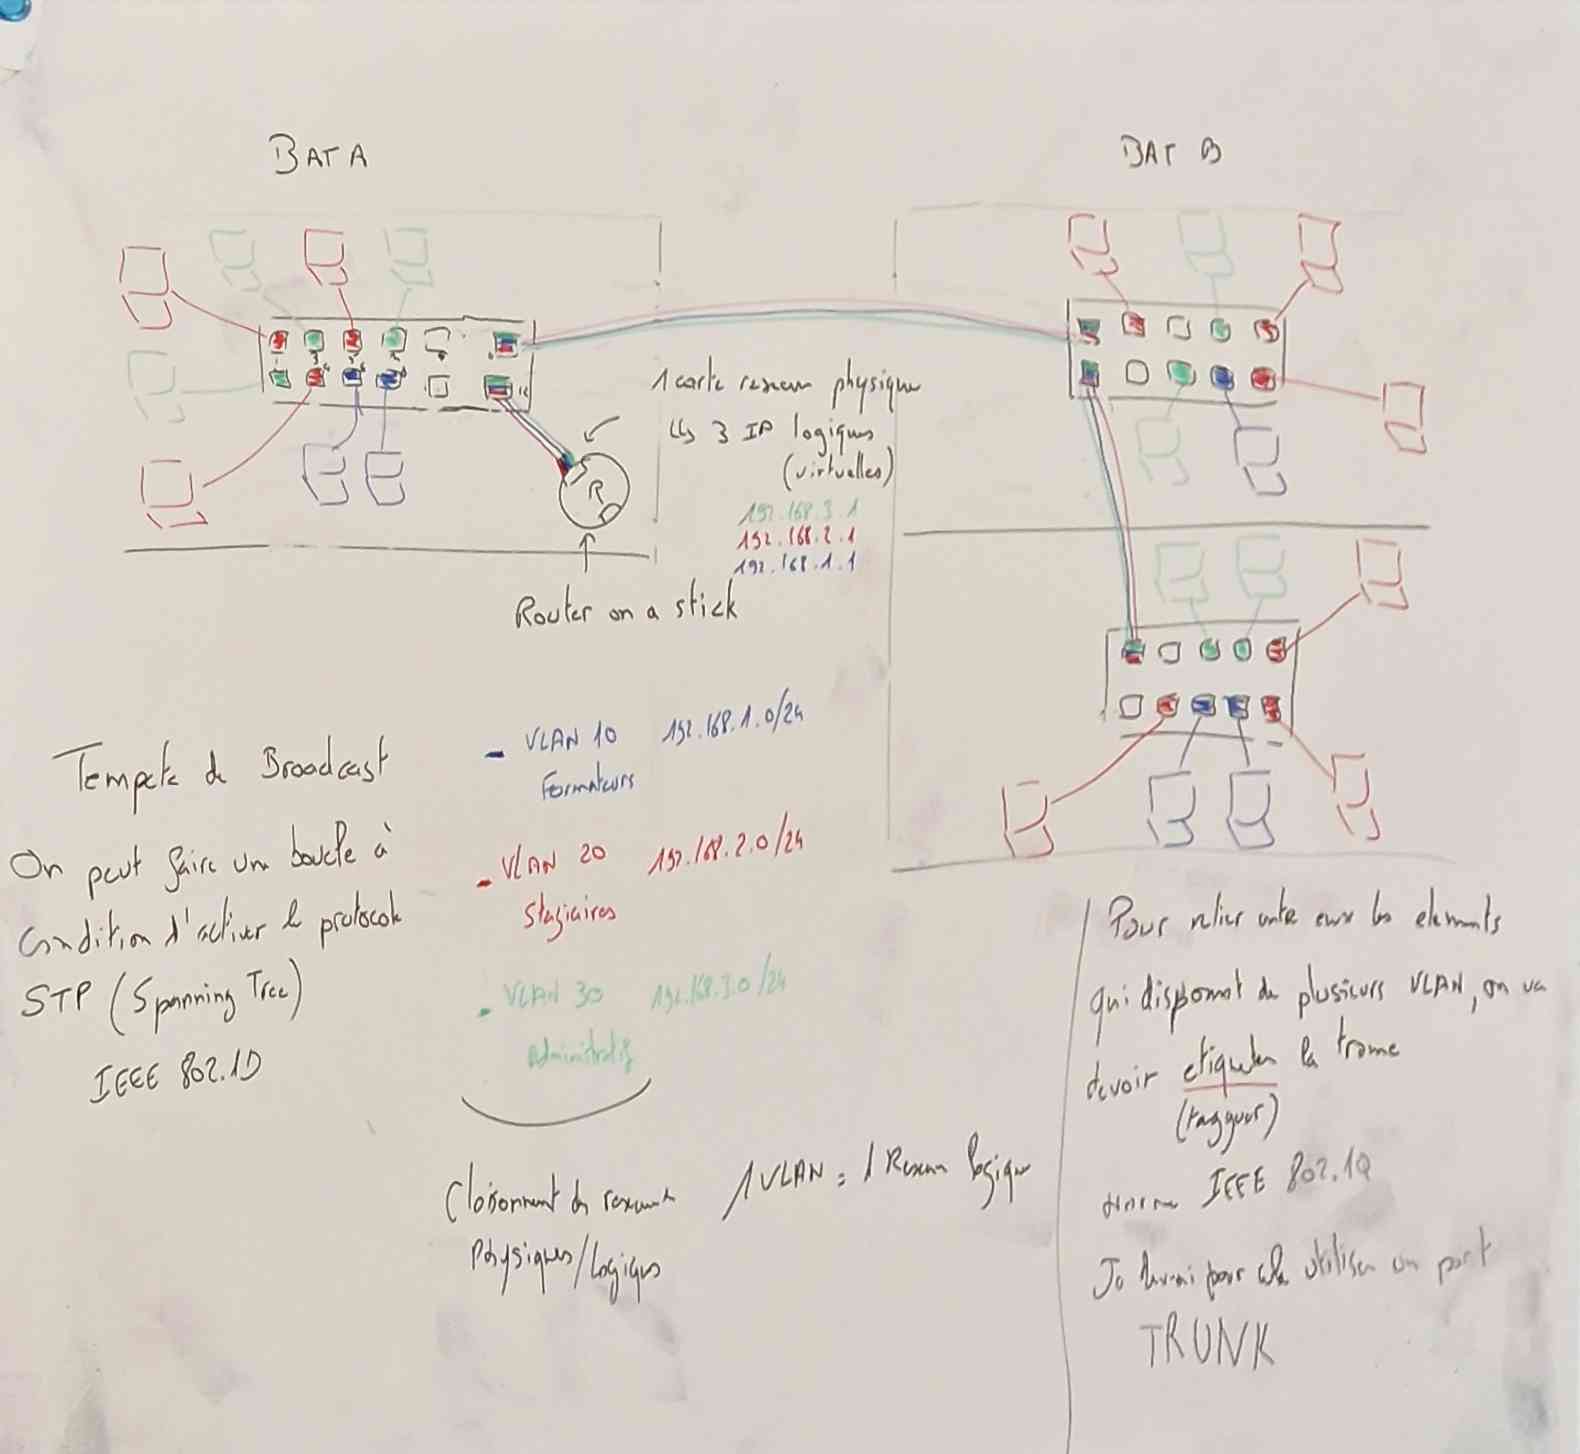 BAT A
BAT B
1 carte reseau physique
↳ 3 IP logiques
(virtuelles)
192.168.3.1
192.168.2.1
192.168.1.1
R
12
Router on a stick
Tempete de Broadcast
On peut faire une boucle à
condition d'activer le protocole
STP (Spanning Tree)
IEEE 802.1D
- VLAN 10 192.168.1.0/24
Formateurs
- VLAN 20 192.168.2.0/24
Stagiaires
- VLAN 30 192.168.3.0/24
Administratif
Cloisonnent des reseaux
Physiques/Logiques
1 VLAN = 1 Reseau logique
Pour relier entre eux les elements
qui disposent de plusieurs VLAN, on va
devoir etiqueter la trame
(tagguer)
norme IEEE 802.1Q
Je devrai pour cela utiliser un port
TRUNK